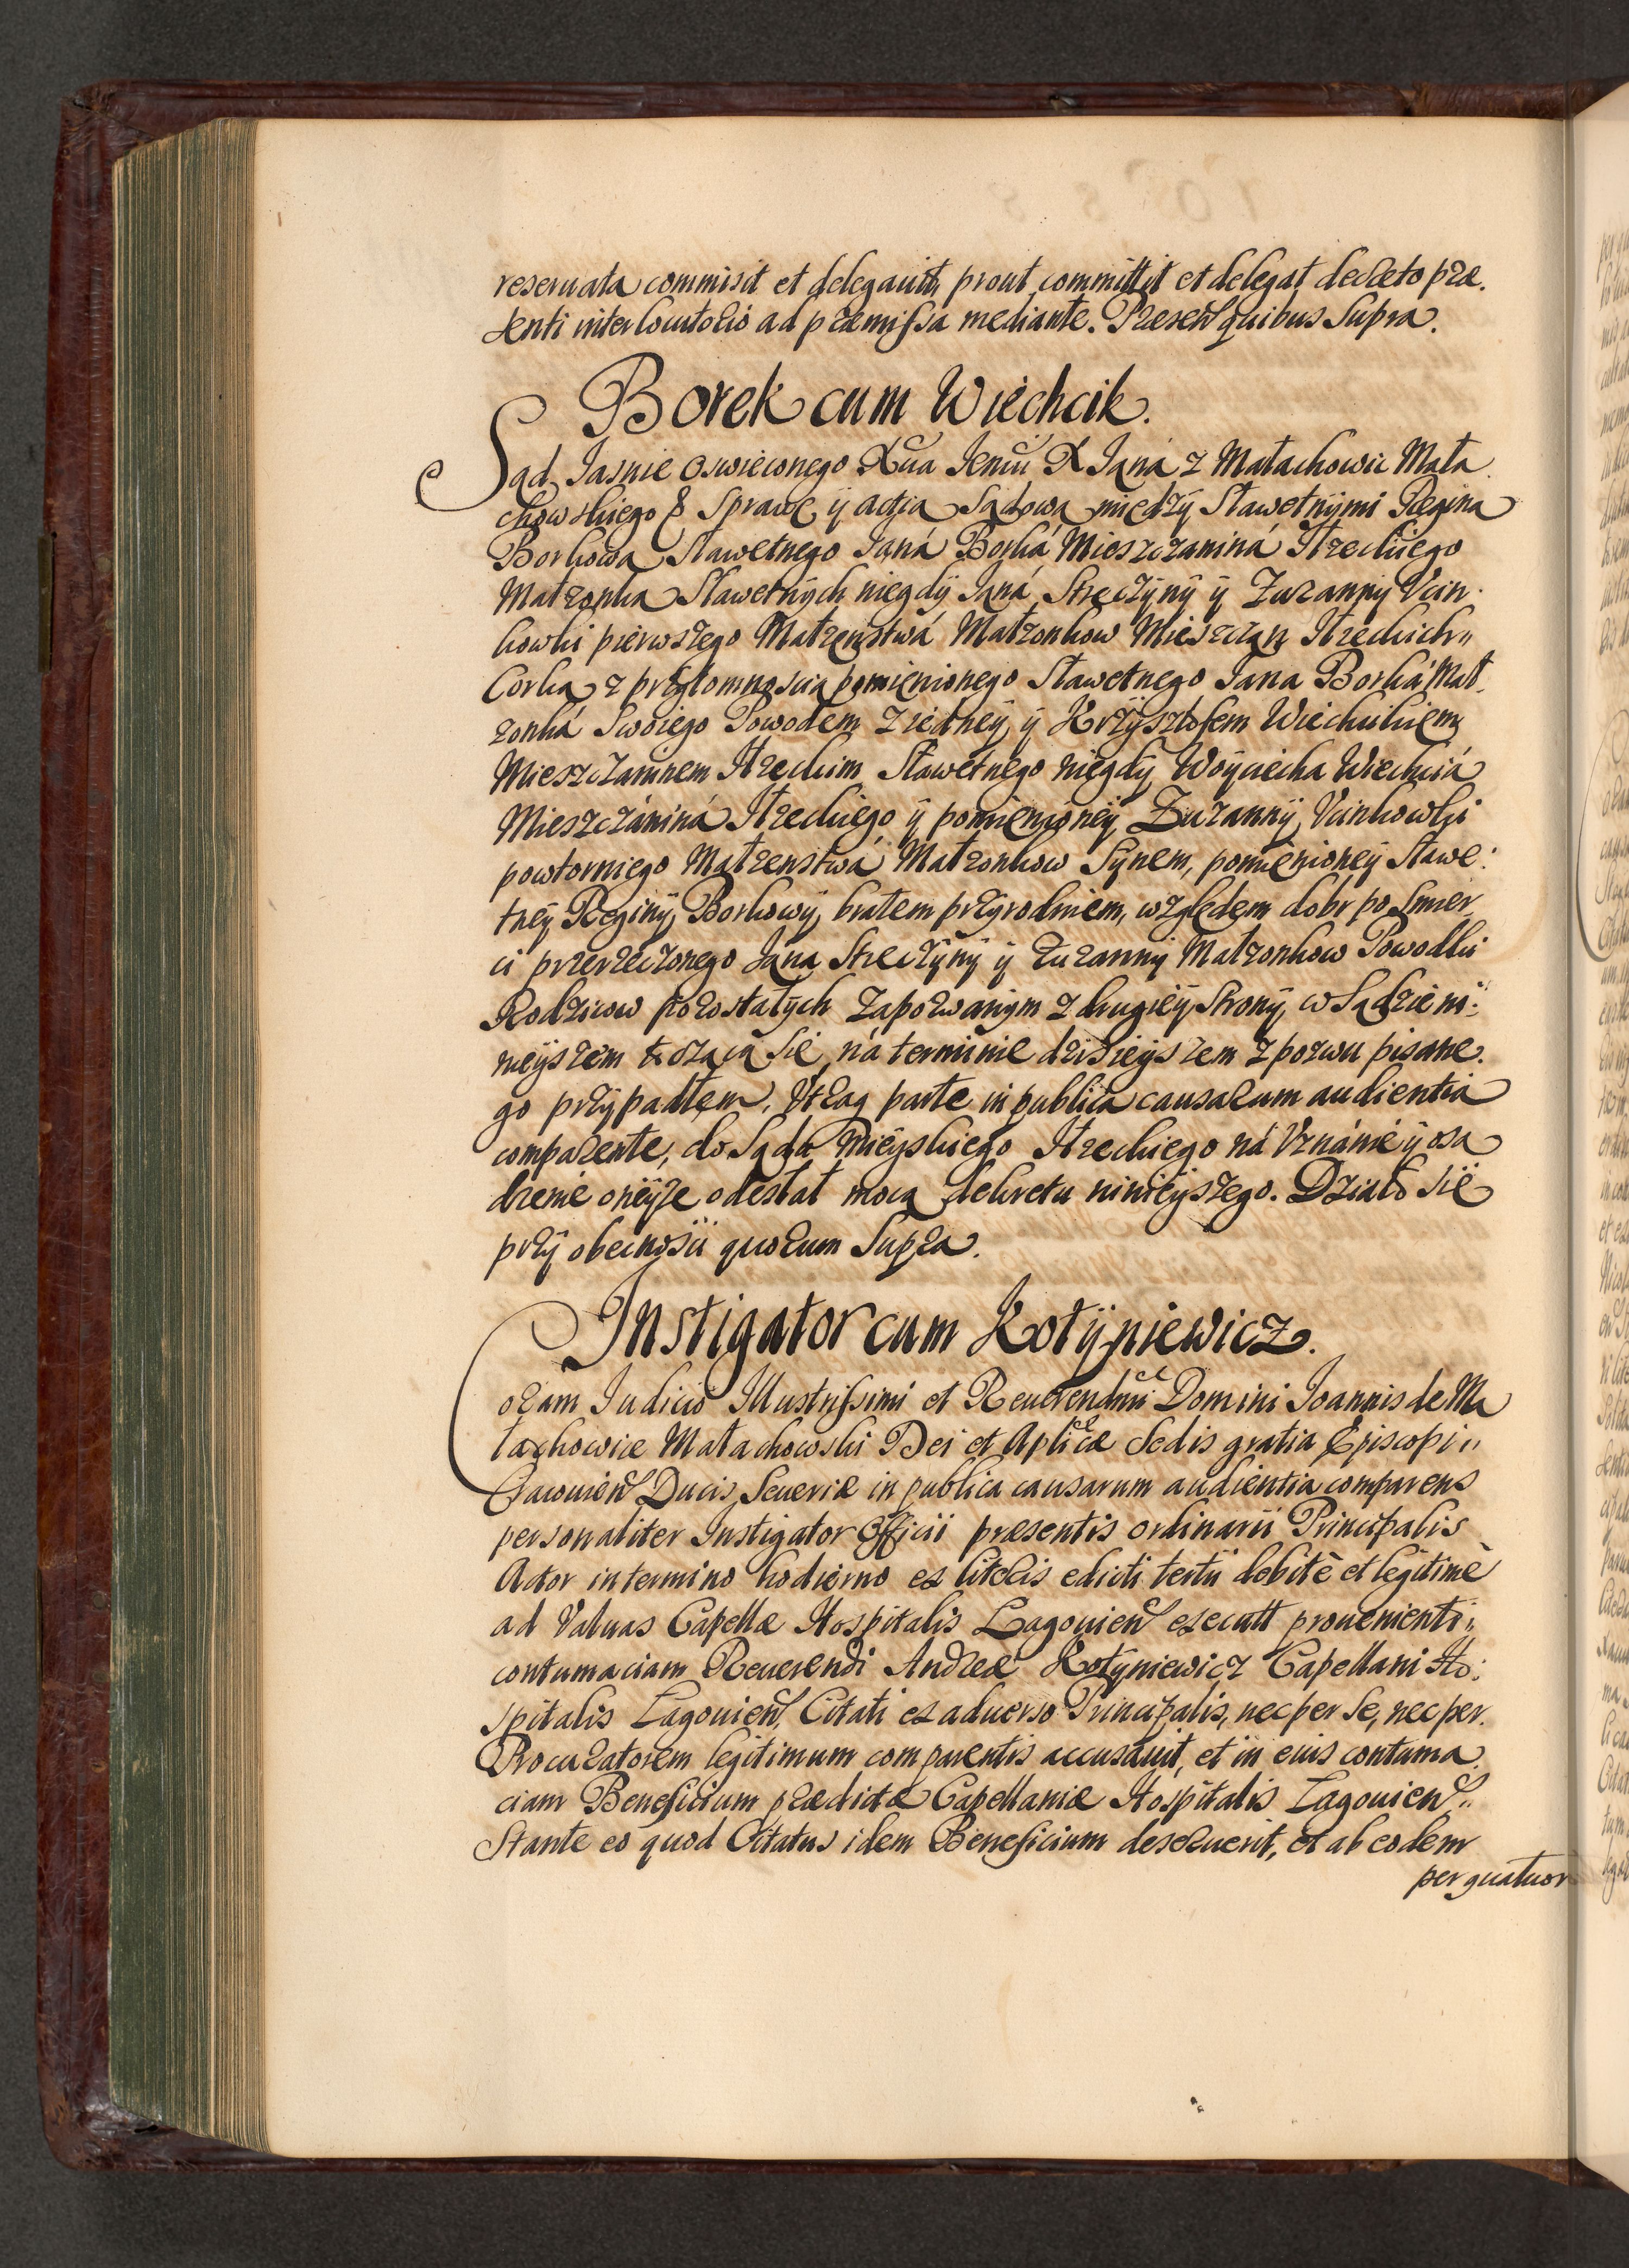 reseruata commisit et delegauit, prout committit et delegat decreto præ.
senti interlocutorio ad præmissa mediante. Præsen quibus Supra.
Borek cum Wiechcik.
Sąd Jasnie Oswieconego Xcia Jemci X Jana z Małachowic Mała
chowskiego & Sprawę ÿ actią Sądową międzÿ Sławetnÿmi Reginą
Borkową Sławetnego Janá Borká Mieszczaniná Ilzeckiego
Małzonką Sławetnÿch niegdÿ Janá Stręczÿnÿ ÿ Zuzannÿ Vcin
kowki pierwszego Małzenstwá Małzonkow Mieszczan Ilzeckich"
Corką z przÿtomnoscią pomienionego Sławetnego Jana Borká Mał
zonká Swoiego Powodem z iedneÿ, ÿ Krzÿsztofem Wiechcikiem
Mieszczaninem Ilzeckim Sławetnego niegdÿ Woÿciecha Wiechciá
Mieszczániná Ilzeckiego ÿ pomienioneÿ Zuzannÿ Vcinkowki
powtorniego Małzenstwá Małzonkow Sÿnem, pomienioneÿ Sławe:
tneÿ Reginÿ Borkowÿ bratem przÿrodniem, względem dobr po Smier
ci przerzeczonego Jana Stręczÿnÿ ÿ Zuzannÿ Małzonkow Powodki
Rodzicow pozostałÿch Zapozwanÿm z drugieÿ Stronÿ, w Sądzie ni:
nieÿszem toczącą Się, ná terminie dzisieÿszem z pozwu pisane.
go przÿpadłem, Vtraq parte in publica causarum audientia
comparente, do Sądu Mieÿskiego Ilzeckiego ná Vznánie ÿ osą
dzenie oneÿze odesłał mocą dekretu ninieÿszego. Działo się
przÿ obecnosci quorum Supra.
Instigator cum Kotÿniewicz.
Coram Judicio Illustrissimi et Reuerendmi Domini Joannis de Ma
łachowice Małachowski Dei et Aplicæ Sedis gratia Episcopi"
Cracouien Ducis Seueriæ in publica causarum audientia comparens
personaliter Instigator Officii præsentis ordinarii Principalis
Actor in termino hodierno ex litteris edicti tertii debitè et legitimè
ad Valuas Capellæ Hospitalis Lagouien executt prouenienti"
contumaciam Reuerendi Andreæ Kotÿniewicz Capellani Ho:
spitalis Lagouien, Citati ex aduerso Principalis, nec per Se, nec per
Procuratorem legitimum comparentis accusauit, et in eius contuma
ciam Beneficium prædictæ Capellaniæ Hospitalis Lagouien"
Stante eo quod Citatus idem Beneficium deseruerit, et ab eodem
per quatuor